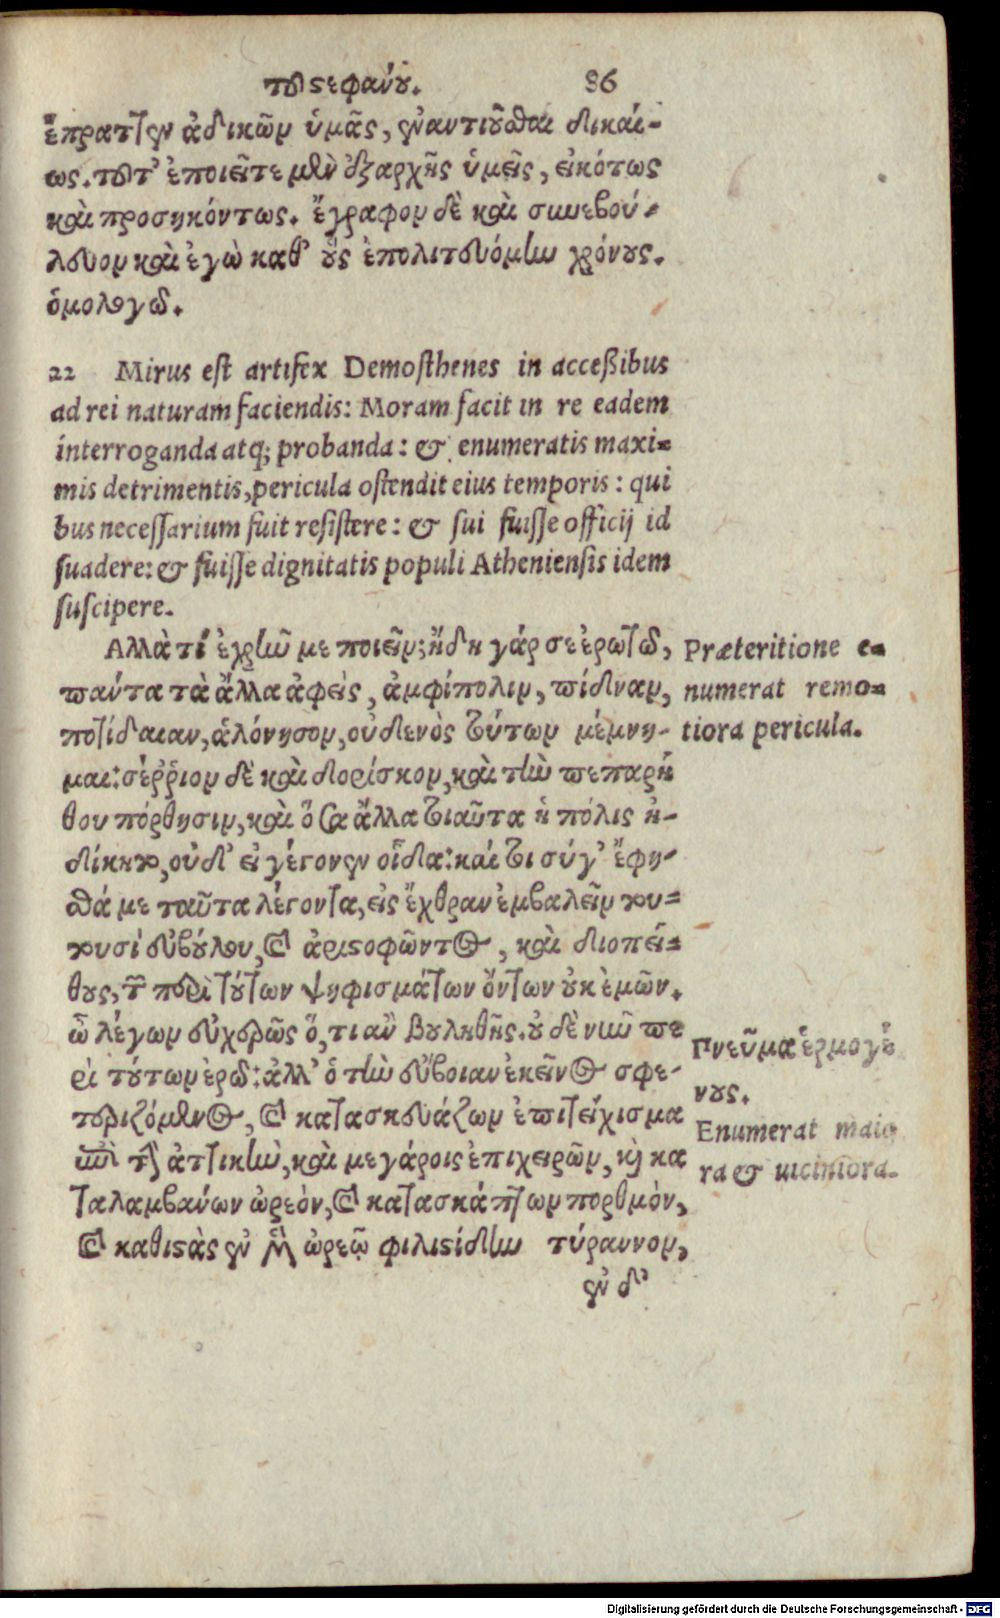 τοῦ στεφάνου. 36
ἔπραττεν ἀδικῶν ὑμᾶς, ἐναντιοῦσθαι δικαί-
ως. τοῦτ' ἐποιεῖτε μὲν ἐξαρχῆς ὑμεῖς, εἰκότως
καὶ προσηκόντως. ἔγραφον δὲ καὶ συνεβού-
λευον καὶ ἐγὼ καθ' οὓς ἐπολιτευόμην χρόνους.
ὁμολογῶ.
22 Mirus est artifex Demosthenes in acceßibus
ad rei naturam faciendis: Moram facit in re eadem
interroganda atq; probanda: & enumeratis maxi=
mis detrimentis, pericula ostendit eius temporis: qui
bus necessarium fuit resistere: & sui fuisse officij id
suadere: & fuisse dignitatis populi Atheniensis idem
suscipere.
Αλλὰ τί ἐχρῆν με ποιεῖν; ἤδη γάρ σε ἐρωτῶ,
πάντα τὰ ἄλλα ἀφεὶς, ἀμφίπολιν, πύδναν,
ποτίδαιαν, ἁλόνησον, οὐδενὸς τούτων μέμνη-
μαι: σέρριον δὲ καὶ δορίσκον, καὶ τὴν πεπαρή
θου πόρθησιν, καὶ ὅσα ἄλλα τοιαῦτα ἡ πόλις ἠ-
δίκητο, οὐδ' εἰ γέγονεν οἶδα: καί τοι σύγ' ἔφη-
σθά με ταῦτα λέγοντα, εἰς ἔχθραν ἐμβαλεῖν του=
τουσὶ εὐβούλου, καὶ ἀριστοφῶντος, καὶ διοπεί=
θους, τῶν περὶ τούτων ψηφισμάτων ὄντων οὐκ ἐμῶν.
ὦ λέγων εὐχερῶς ὅ, τι ἂν βουληθῇς. οὐ δὲ νῦν πε
ρὶ τούτων ἐρῶ: ἀλλ' ὁ τὴν εὔβοιαν ἐκεῖνος σφε-
τεριζόμενος, καὶ κατασκευάζων ἐπιτείχισμα
ἐπὶ τὴν ἀττικὴν, καὶ μεγάροις ἐπιχειρῶν, καὶ κα
ταλαμβάνων ὠρεὸν, καὶ κατασκάπτων πορθμὸν,
καὶ καθιστὰς ἐν μὲν ὠρεῷ φιλιστίδην τύραννον,
ἐν δ'
Præteritione e=
numerat remo=
tiora pericula.
Πνεῦμα ἑρμογέ
νους.
Enumerat maio
ra & uiciniora.
Digitalisierung gefördert durch die Deutsche Forschungsgemeinschaft - DFG